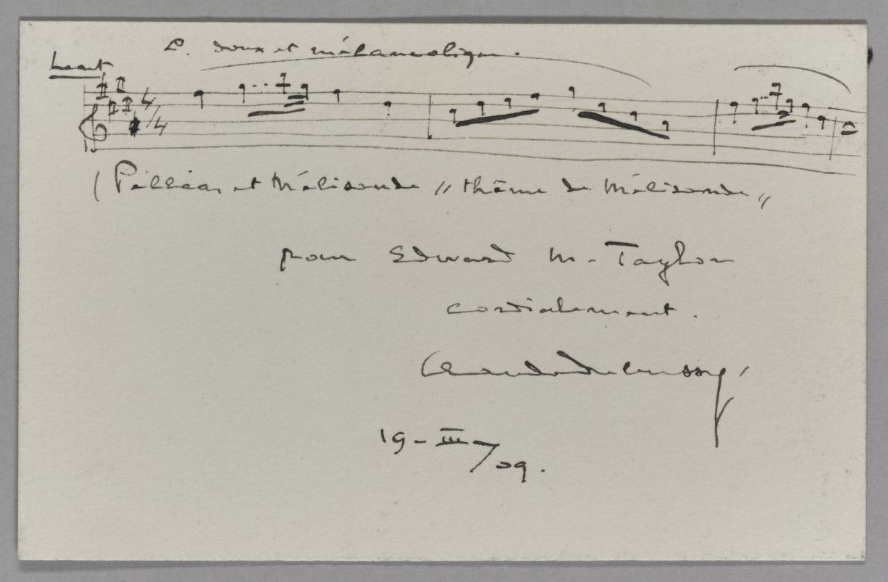 P. doux et mélancolique.
Lent
4/4
(Pelléas et Mélisande "thème de Mélisande"
pour Edward M. Taylor
cordialement.
Claude Debussy
19-III/09.